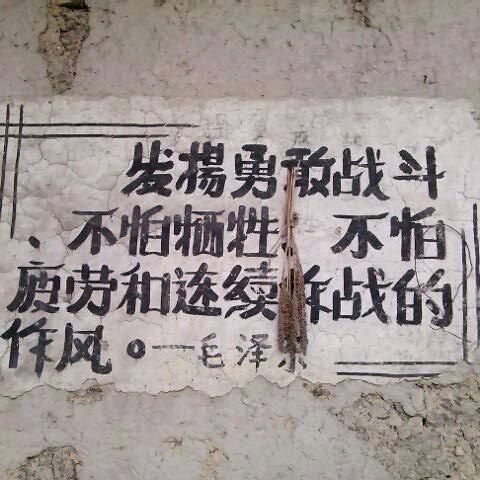 发揚勇敢战斗
、不怕牺牲 不怕
疲劳和连续作战的
作风。—毛泽东